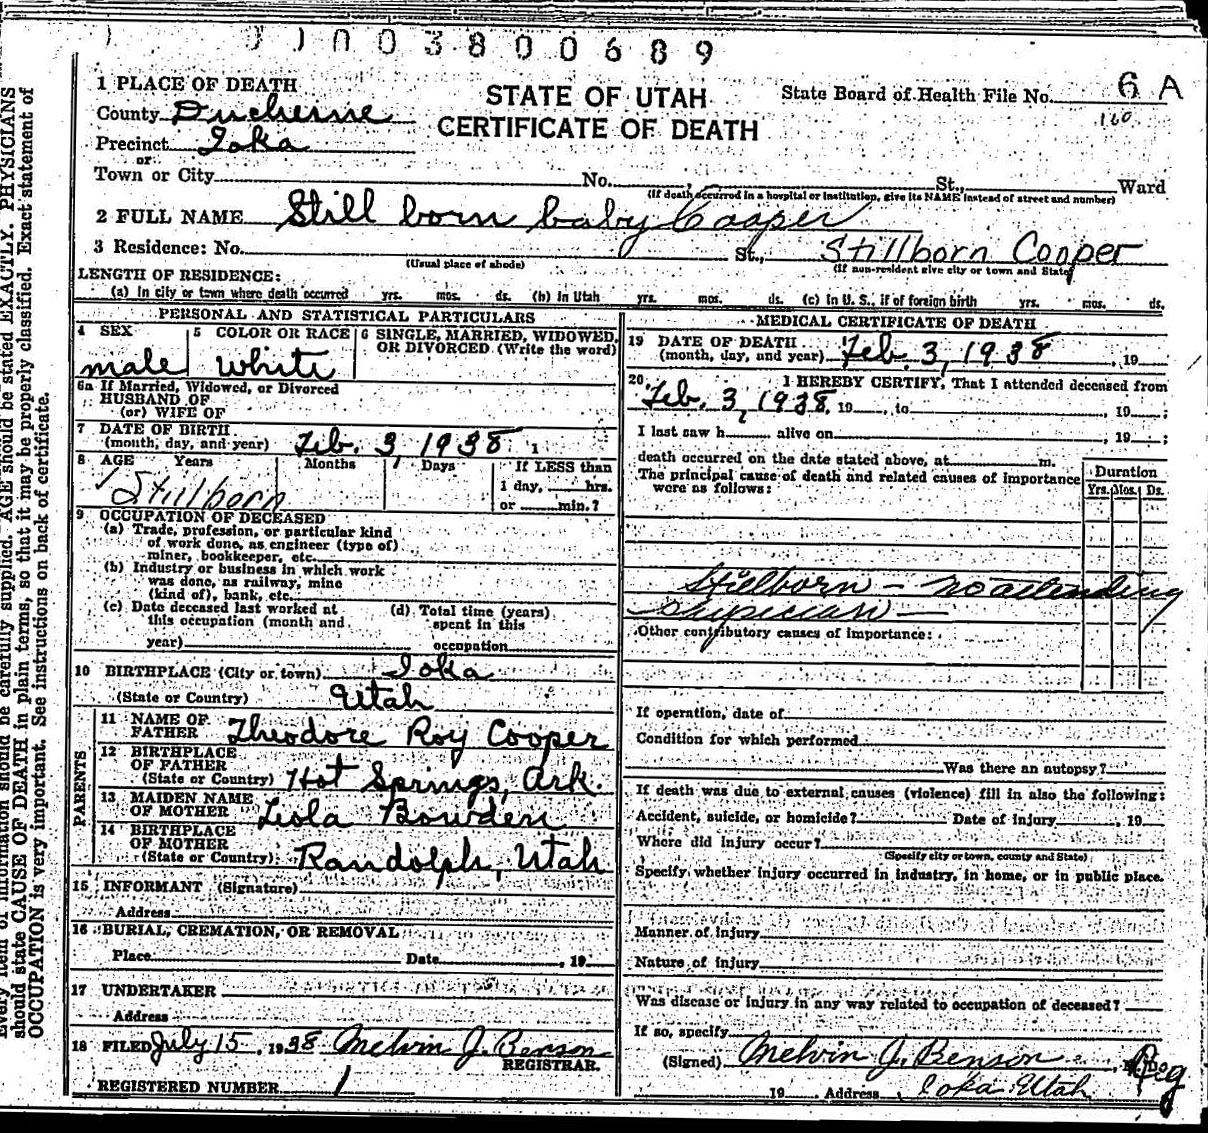 003800689
1 PLACE OF DEATH
STATE OF UTAH
CERTIFICATE OF DEATH
State Board of Health File No. 6 A
160
County Duchesne
Precinct Ioka
or
Town or City No. St., Ward
(If death occurred in a hospital or institution, give its NAME instead of street and number)
2 FULL NAME Still born baby Cooper
3 Residence: No. St., Stillborn Cooper
(Usual place of abode) (If non-resident give city or town and State)
LENGTH OF RESIDENCE:
(a) In city or town where death occurred yrs. mos. ds. (b) In Utah yrs. mos. ds. (c) In U. S., if of foreign birth yrs. mos. ds.
PERSONAL AND STATISTICAL PARTICULARS
4 SEX 5 COLOR OR RACE 6 SINGLE, MARRIED, WIDOWED, OR DIVORCED (Write the word)
male white
6a If Married, Widowed, or Divorced
HUSBAND OF
(or) WIFE OF
7 DATE OF BIRTH
(month, day, and year) Feb. 3, 1938 1
8 AGE Years Months Days If LESS than
1 day, hrs.
or min.?
Stillborn
9 OCCUPATION OF DECEASED
(a) Trade, profession, or particular kind
of work done, as engineer (type of)
miner, bookkeeper, etc.
(b) Industry or business in which work
was done, as railway, mine
(kind of), bank, etc.
(c) Date deceased last worked at (d) Total time (years)
this occupation (month and spent in this
year) occupation
10 BIRTHPLACE (City or town) Ioka
(State or Country) Utah
PARENTS
11 NAME OF
FATHER Theodore Roy Cooper
12 BIRTHPLACE
OF FATHER
(State or Country) Hot Springs, Ark.
13 MAIDEN NAME
OF MOTHER Leola Bowden
14 BIRTHPLACE
OF MOTHER
(State or Country) Randolph, Utah
15 INFORMANT (Signature)
Address
16 BURIAL, CREMATION, OR REMOVAL
Place Date , 19
17 UNDERTAKER
Address
18 FILED July 15, 1938 Melvin J. Benson
REGISTRAR.
REGISTERED NUMBER 1
MEDICAL CERTIFICATE OF DEATH
19 DATE OF DEATH
(month, day, and year) Feb. 3, 1938 , 19
20. I HEREBY CERTIFY, That I attended deceased from
Feb. 3, 1938, 19 , to , 19 ;
I last saw h alive on , 19 ;
death occurred on the date stated above, at m.
The principal cause of death and related causes of importance
were as follows:
Duration
Yrs. Mos. Ds.
Stillborn - no attending
physician -
Other contributory causes of importance:
If operation, date of
Condition for which performed
Was there an autopsy?
If death was due to external causes (violence) fill in also the following:
Accident, suicide, or homicide? Date of injury , 19
Where did injury occur?
(Specify city or town, county and State)
Specify whether injury occurred in industry, in home, or in public place.
Manner of injury
Nature of injury
Was disease or injury in any way related to occupation of deceased?
If so, specify
(Signed) Melvin J. Benson , Reg
19 Address Ioka Utah
Every item of information should be carefully supplied. AGE should be stated EXACTLY. PHYSICIANS
should state CAUSE OF DEATH in plain terms, so that it may be properly classified. Exact statement of
OCCUPATION is very important. See instructions on back of certificate.